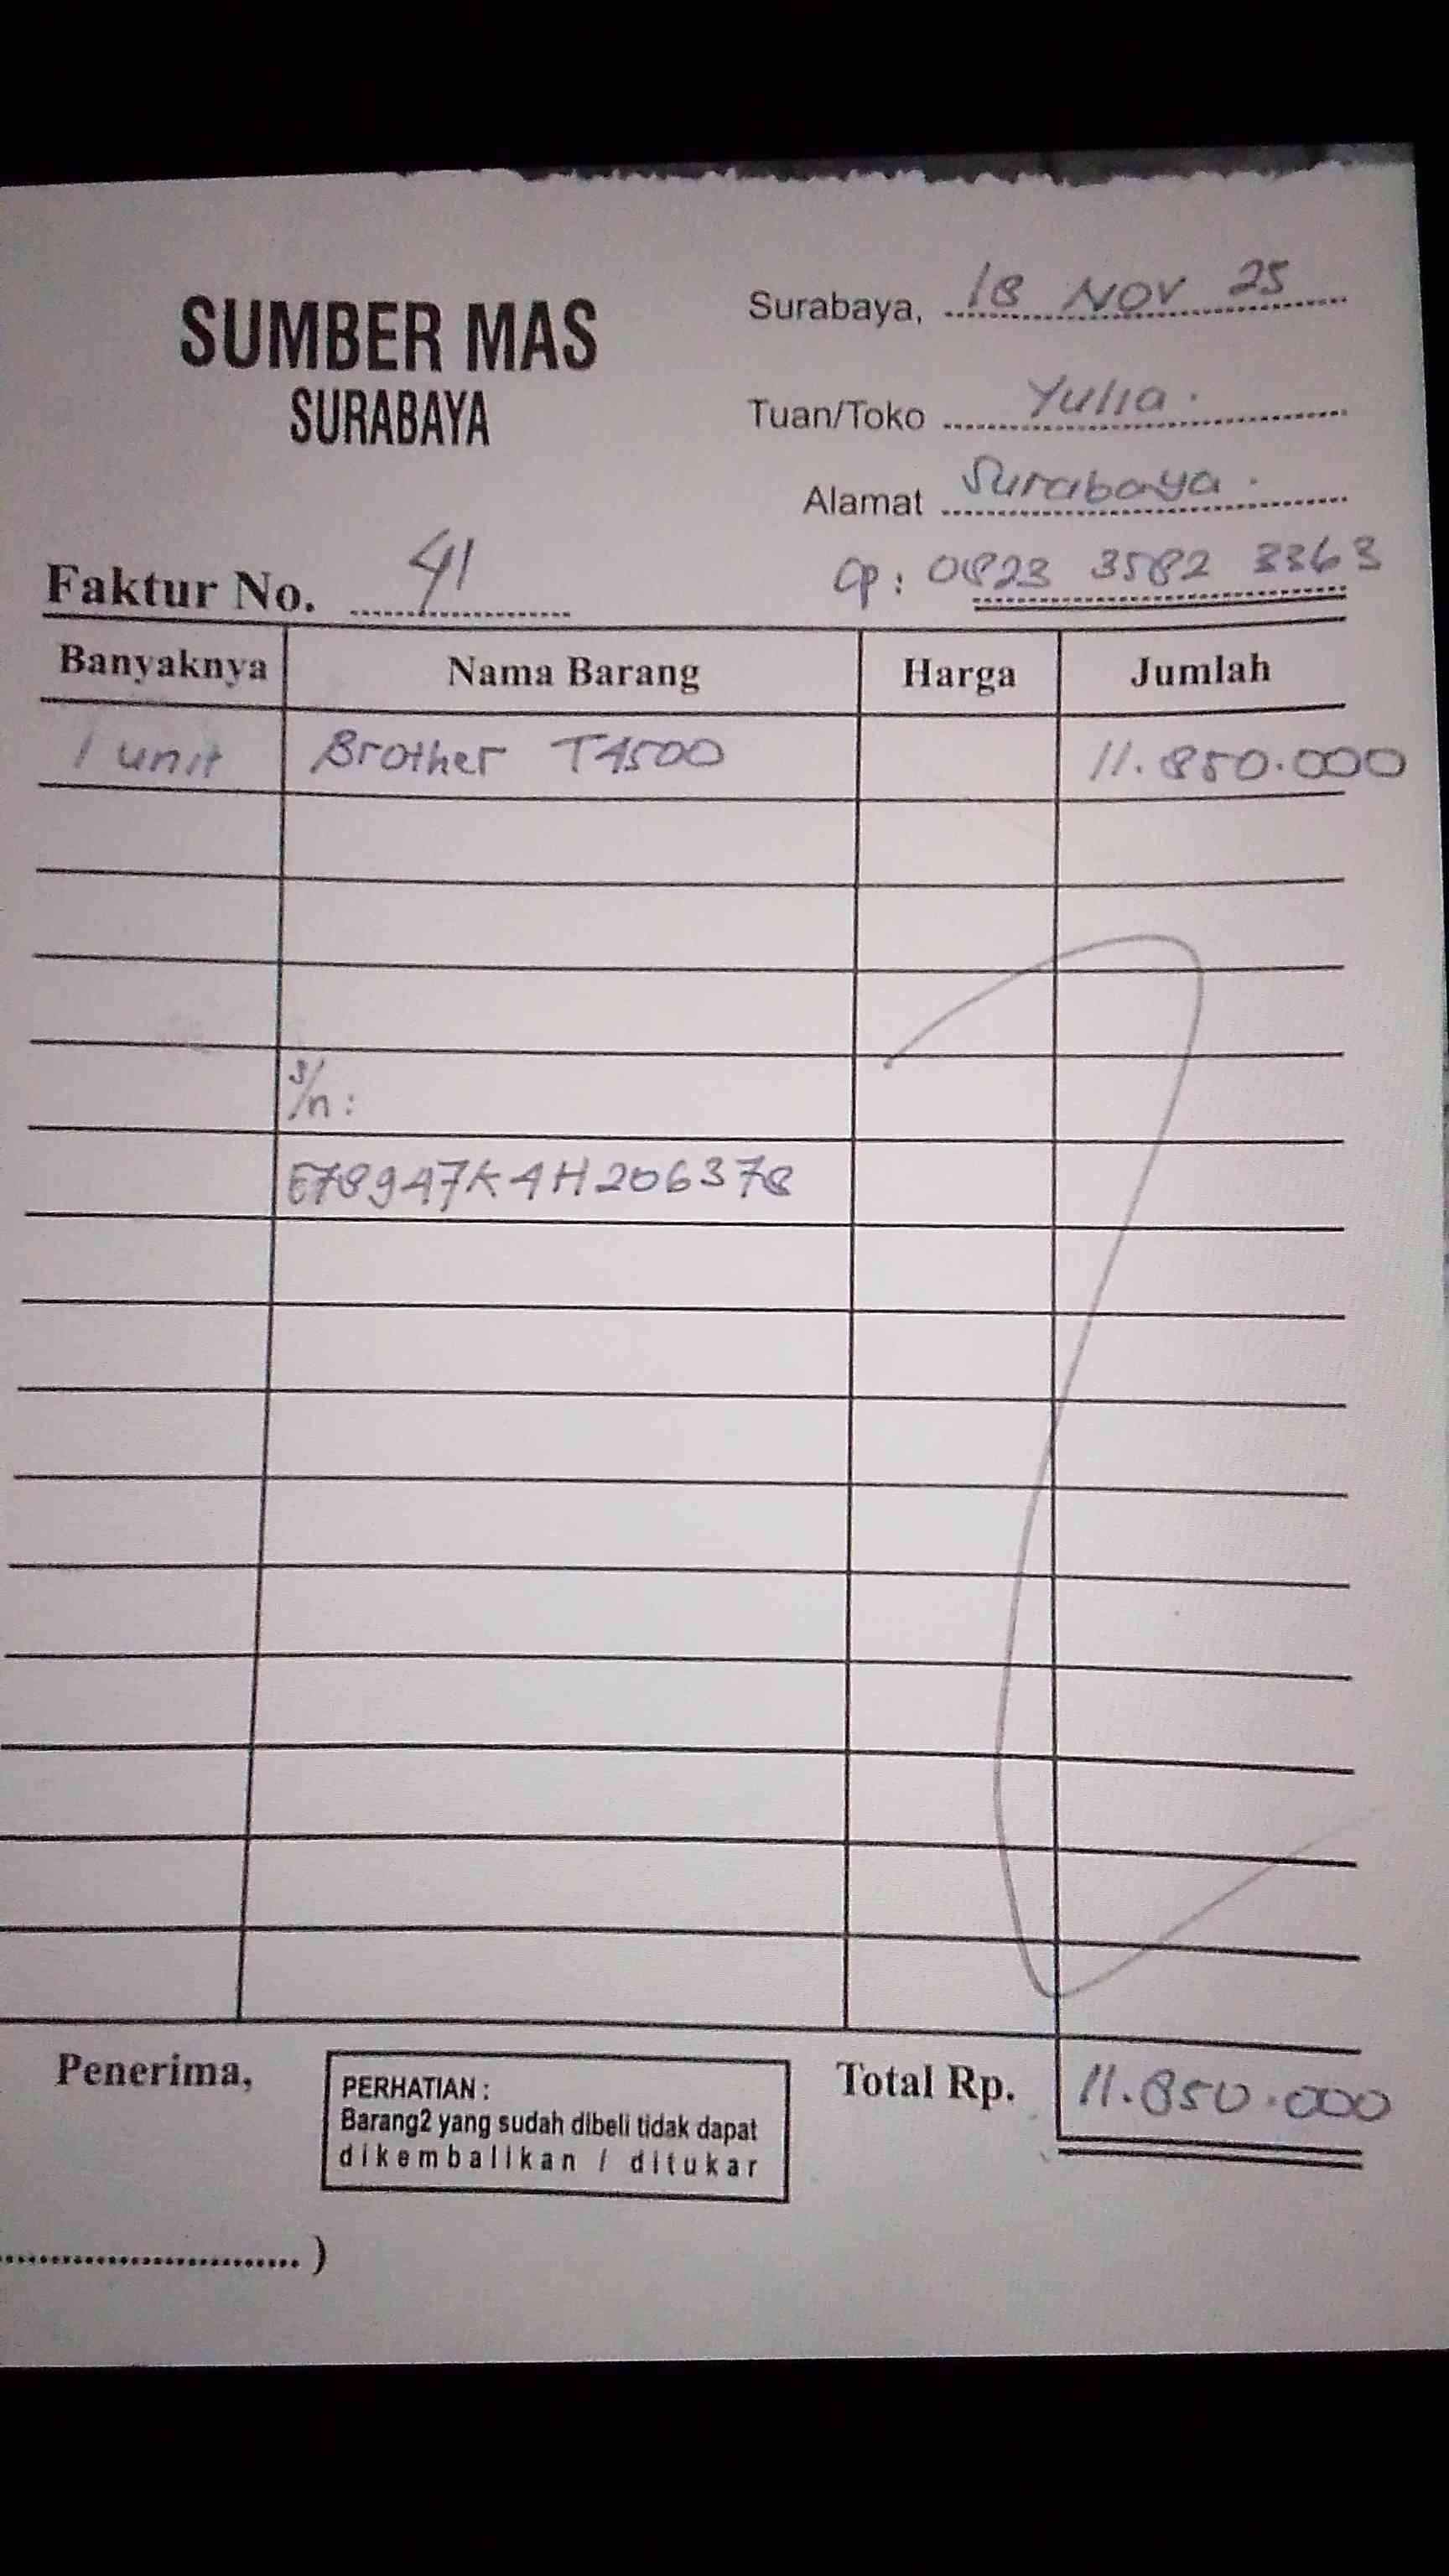 SUMBER MAS
SURABAYA
Surabaya, 18 NOV 25
Tuan/Toko Yulia.
Alamat Surabaya.
Cp : 0823 3582 3363
Faktur No. 41
Banyaknya Nama Barang Harga Jumlah
1 unit Brother T4500 11.850.000
s/n :
E78947K4H206378
Penerima,
PERHATIAN :
Barang2 yang sudah dibeli tidak dapat
dikembalikan / ditukar
Total Rp. 11.850.000
.............................. )